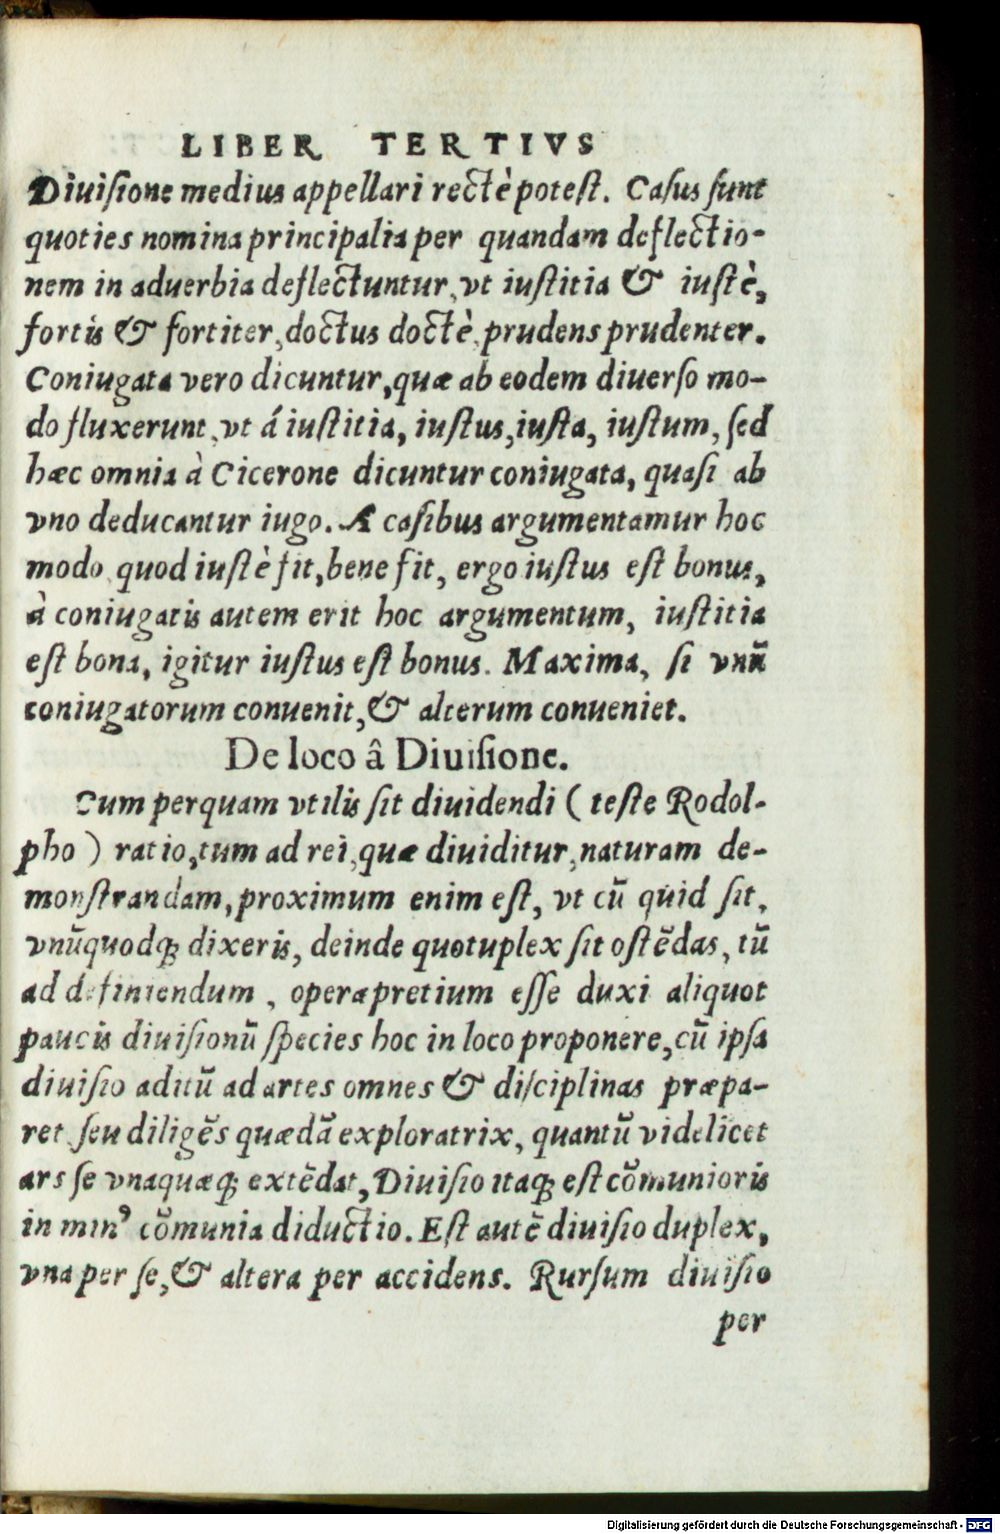 LIBER TERTIVS
Diuiſione medius appellari rectè poteſt. Caſus ſunt
quoties nomina principalia per quandam deflectio-
nem in aduerbia deflectuntur, vt iuſtitia & iuſtè,
fortis & fortiter, doctus doctè, prudens prudenter.
Coniugata vero dicuntur, quæ ab eodem diuerſo mo-
do fluxerunt, vt á iuſtitia, iuſtus, iuſta, iuſtum, ſed
hæc omnia à Cicerone dicuntur coniugata, quaſi ab
vno deducantur iugo. A caſibus argumentamur hoc
modo, quod iuſtè fit, bene fit, ergo iuſtus eſt bonus,
à coniugatis autem erit hoc argumentum, iuſtitia
eſt bona, igitur iuſtus eſt bonus. Maxima, ſi vnū
coniugatorum conuenit, & alterum conueniet.
De loco â Diuiſione.
Cum perquam vtilis ſit diuidendi (teſte Rodol-
pho) ratio, tum ad rei, quæ diuiditur, naturam de-
monſtrandam, proximum enim eſt, vt cū quid ſit,
vnūquodq; dixeris, deinde quotuplex ſit oſtēdas, tū
ad definiendum, operæpretium eſſe duxi aliquot
paucis diuiſionū ſpecies hoc in loco proponere, cū ipſa
diuiſio aditū ad artes omnes & diſciplinas præpa-
ret ſeu diligēs quædā exploratrix, quantū videlicet
ars ſe vnaquæq; extēdat, Diuiſio itaq; eſt cōmunioris
in minꝰ cōmunia diductio. Eſt autē diuiſio duplex,
vna per ſe, & altera per accidens. Rurſum diuiſio
per
Digitalisierung gefördert durch die Deutsche Forschungsgemeinschaft - DFG